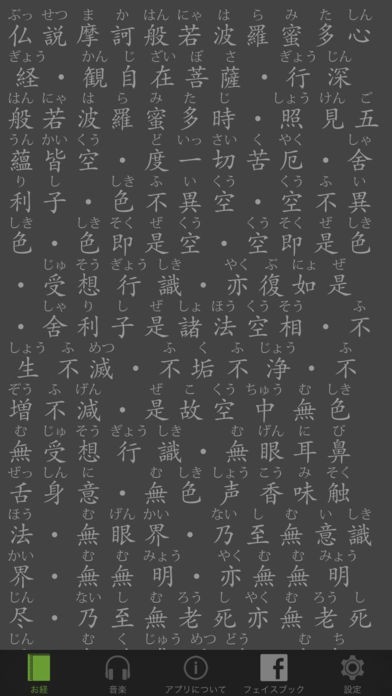 ぶっ せつ ま か はん にゃ は ら み た しん
仏説摩訶般若波羅蜜多心
ぎょう かん じ ざい ぼ さ ぎょう じん
経・観自在菩薩・行深
はん にゃ は ら み た じ しょう けん ご
般若波羅蜜多時・照見五
うん かい くう ど いっ さい く やく しゃ
蘊皆空・度一切苦厄・舎
り し しき ふ い くう くう ふ い
利子・色不異空・空不異
しき しき そく ぜ くう くう そく ぜ しき
色・色即是空・空即是色
じゅ そう ぎょう しき やく ぶ にょ ぜ
・受想行識・亦復如是
しゃ り し ぜ しょ ほう くう そう ふ
・舎利子是諸法空相・不
しょう ふ めつ ふ く ふ じょう ふ
生不滅・不垢不浄・不
ぞう ふ げん ぜ こ くう ちゅう む しき
増不減・是故空中無色
む じゅ そう ぎょう しき む げん に び
無受想行識・無眼耳鼻
ぜっ しん に む しき しょう こう み そく
舌身意・無色声香味触
ほう む げん かい ない し む い しき
法・無眼界・乃至無意識
かい む む みょう やく む む みょう
界・無無明・亦無無明
じん ない し む ろう し やく む ろう し
尽・乃至無老死亦無老死
じん む く じゅう めつ どう む ち
お経 音楽 アプリについて フェイスブック 設定